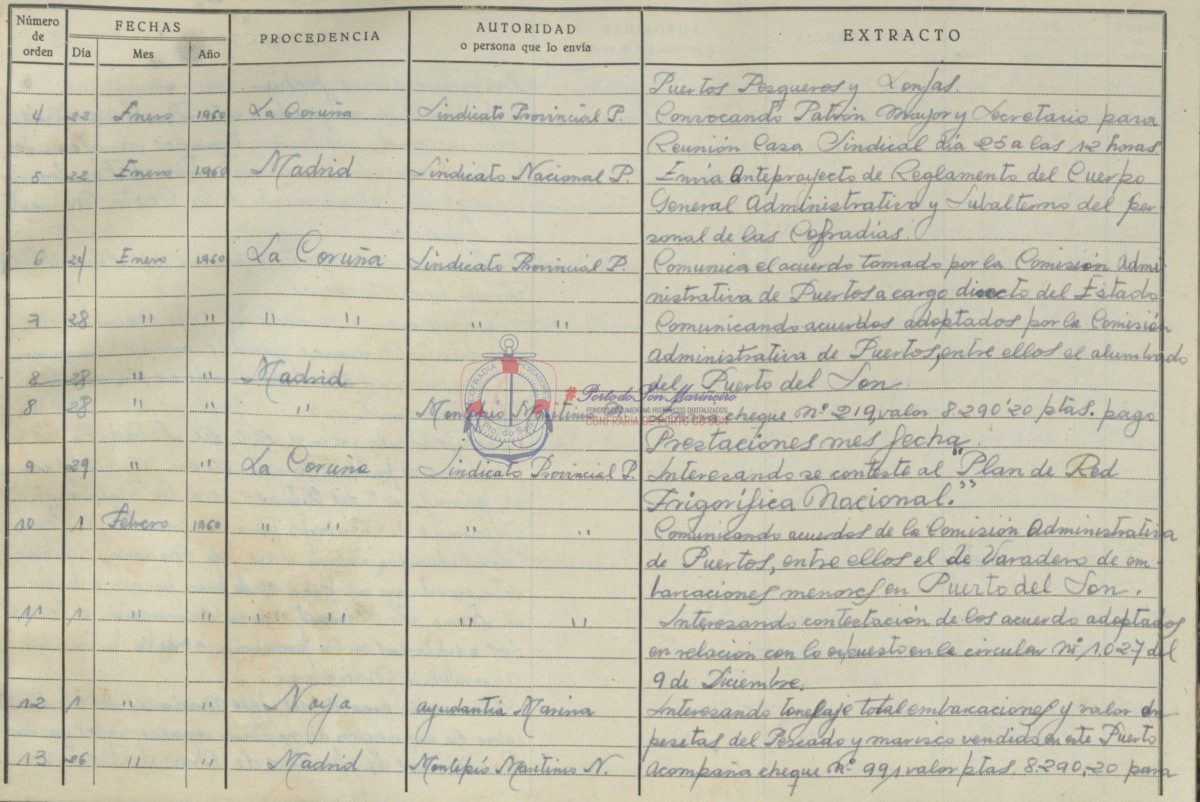 Número de orden FECHAS PROCEDENCIA AUTORIDAD o persona que lo envía EXTRACTO
Día Mes Año
Puertos Pesqueros y Lonjas.
4 22 Enero 1960 La Coruña Sindicato Provincial P. Convocando Patrón Mayor y Secretario para
Reunión Casa Sindical día 25 a las 12 horas
5 22 Enero 1960 Madrid Sindicato Nacional P. Envia anteproyecto de Reglamento del Cuerpo
General Administrativo y Subalterno del per-
sonal de las Cofradias.
6 24 Enero 1960 La Coruña Sindicato Provincial P. Comunica el acuerdo tomado por la Comisión Admi-
nistrativa de Puertos a cargo directo del Estado
7 28 " " " " " " Comunicando acuerdos adoptados por la Comisión
Administrativa de Puertos, entre ellos el alumbrado
8 28 " " Madrid del Puerto del Son.
8 28 " " " Montepio Maritimo cheque nº 219, valor 8.290'20 ptas. pago
Prestaciones mes fecha.
9 29 " " La Coruña Sindicato Provincial P. Interesando se conteste al "Plan de Red
Frigorífica Nacional."
10 1 Febrero 1960 " " " " Comunicando acuerdos de la Comisión Administrativa
de Puertos, entre ellos el de Varadero de em-
barcaciones menores en Puerto del Son.
11 1 " " " " " " Interesando contestación de los acuerdo adoptados
en relación con lo expuesto en la circular nº 1.027 del
9 de Diciembre.
12 1 " " Noya ayudantía Marina Interesando tonelaje total embarcaciones y valor en
pesetas del Pescado y marisco vendido en este Puerto
13 26 " " Madrid Montepío Maritimo N. Acompaña cheque nº 991 valor ptas 8.290,20 para
COFRADIA PESCADORES
Pto. do Son
#Porto do Son Mariñeiro
FONDO DOCUMENTAL HISTÓRICO DIGITALIZADOS
CONFRARÍA DE PORTO DO SON